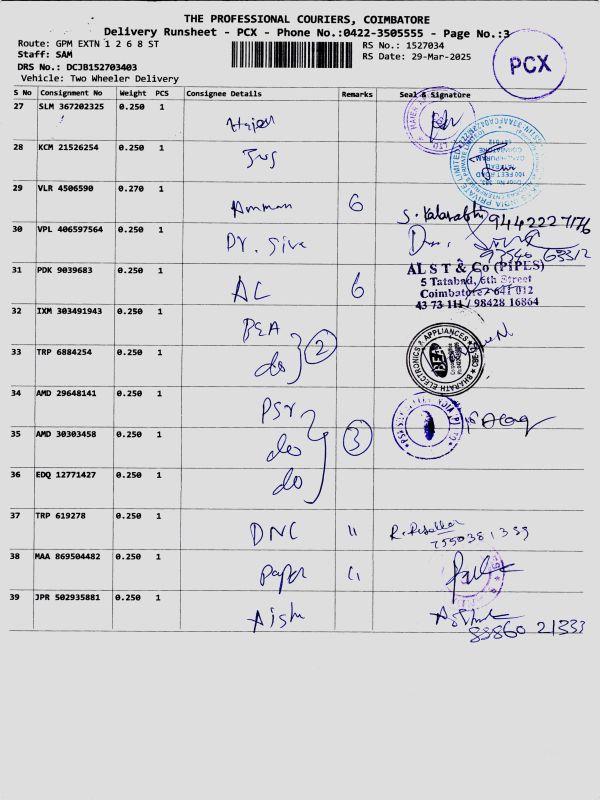 THE PROFESSIONAL COURIERS, COIMBATORE
Delivery Runsheet - PCX - Phone No.:0422-3505555 - Page No.:3
Route: GPM EXTN 1 2 6 8 ST
RS No.: 1527034
Staff: SAM
RS Date: 29-Mar-2025
DRS No.: DCJB152703403
Vehicle: Two Wheeler Delivery
PCX
S No Consignment No Weight PCS Consignee Details Remarks Seal & Signature
27 SLM 367202325 0.250 1
28 KCM 21526254 0.250 1
29 VLR 4506590 0.270 1 Amman 6
9442227176
30 VPL 406597564 0.250 1 Dr. Siva
31 PDK 9039683 0.250 1 AL 6
AL S T & Co (PIPES)
5 Tatabad, 6th Street
Coimbatore - 641 012
43 73 111 / 98428 16864
32 IXM 303491943 0.250 1 BEA
2
33 TRP 6884254 0.250 1 do
BHARATH ELECTRONICS & APPLIANCES
BEA
34 AMD 29648141 0.250 1 PSR
35 AMD 30303458 0.250 1 do 3
36 EDQ 12771427 0.250 1 do
37 TRP 619278 0.250 1 DNC "
7550381339
38 MAA 869504482 0.250 1 Paper
39 JPR 502935881 0.250 1 Aish
88860 21333